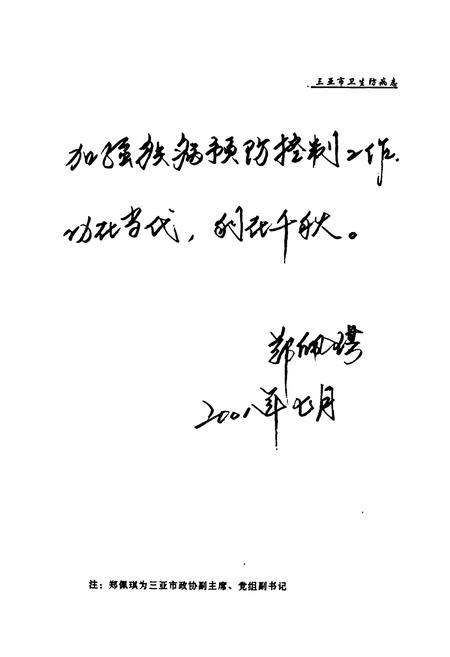 三亚市卫生防病志
加强疾病预防控制工作.
功在当代，利在千秋。
郑佩琪
二〇〇八年七月
注：郑佩琪为三亚市政协副主席、党组副书记